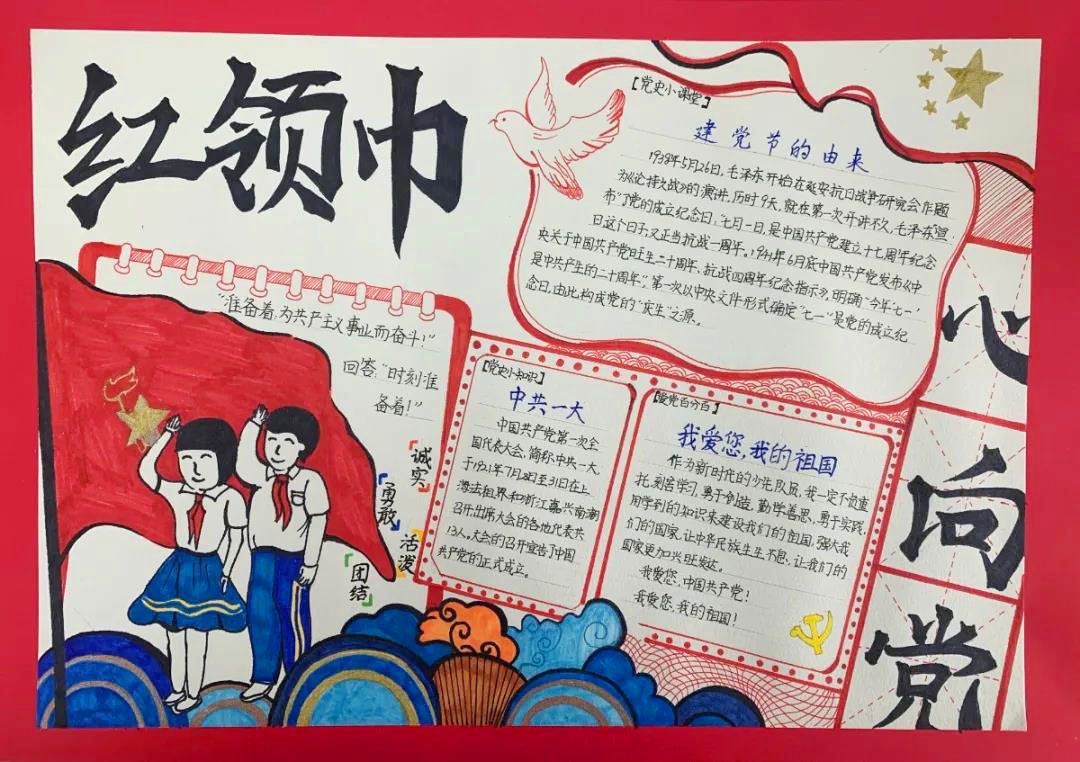 红领巾
心向党
【党史小课堂】
建党节的由来
1938年5月26日,毛泽东开始在延安抗日战争研究会作题
为《论持久战》的演讲,历时9天,就在第一次开讲不久,毛泽东宣
布了党的成立纪念日:“七月一日,是中国共产党建立十七周年纪念
日这个日子又正当抗战一周年。1941年6月底中国共产党发布《中
央关于中国共产党旺生二十周年、抗战四周年纪念指示》,明确“今年七一
是中共产生的二十周年”,第一次以中央文件形式确定“七一”是党的成立纪
念日,由此构成党的“庆生”之源。
“准备着,为共产主义事业而奋斗!”
回答:“时刻准
备着!”
诚实
勇敢
活泼
团结
【党史小知识】
中共一大
中国共产党第一次全
国代表大会,简称中共一大
于1921年7月23日至31日在上
海法租界和浙江嘉兴南湖
召开出席大会的各地代表共
13人。大会的召开宣告了中国
共产党的正式成立。
【爱党百分百】
我爱您,我的祖国
作为新时代的少先队员,我一定不负重
托,刻苦学习,勇于创造,勤学善思,勇于实践,
用学到的知识来建设我们的祖国,强大我
们的国家,让中华民族生生不息,让我们的
国家更加兴旺发达。
我爱您,中国共产党!
我爱您,我的祖国!